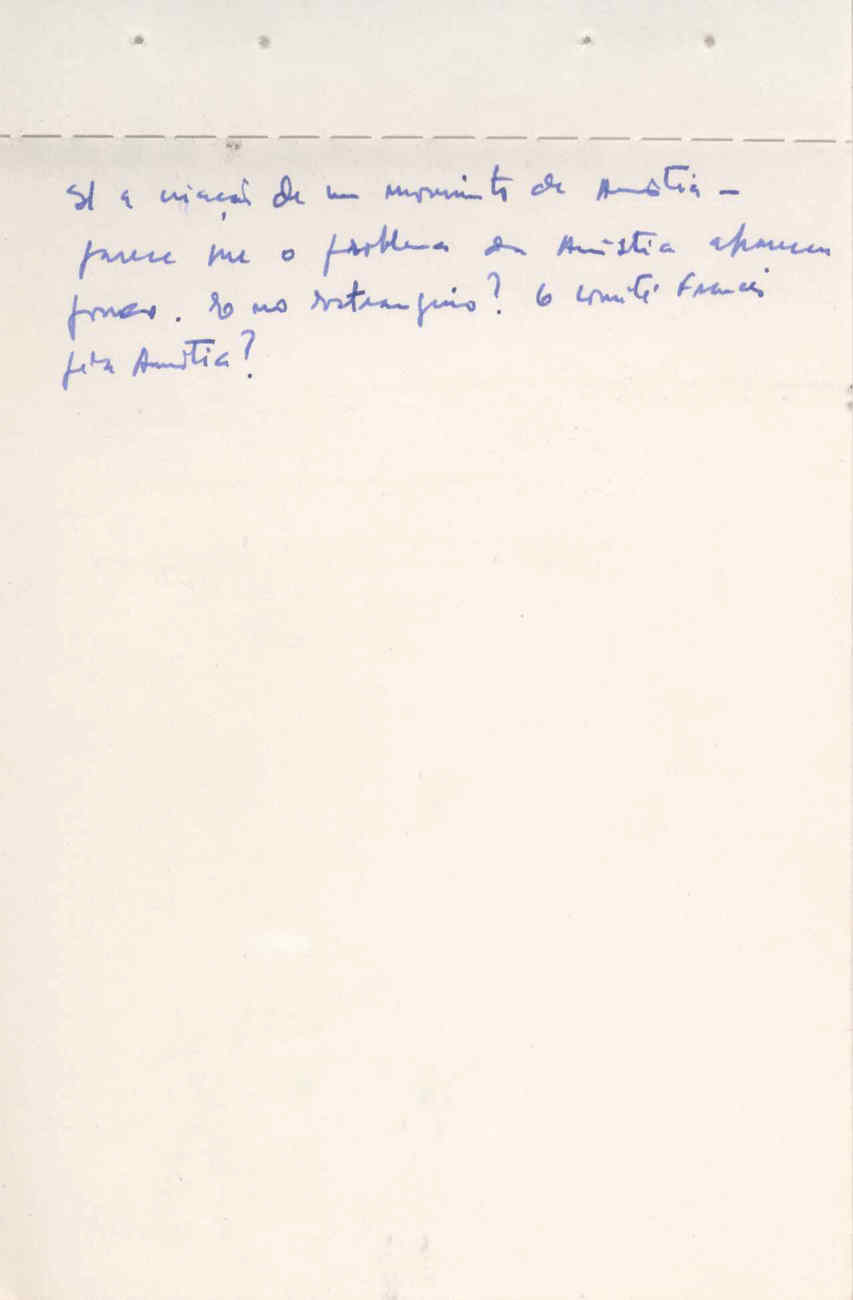 S/ a criação de um movimento de Amnistia –
parece me o problema da Amnistia apareceu
pouco. E no estrangeiro? O comité Francês
pela Amnistia?